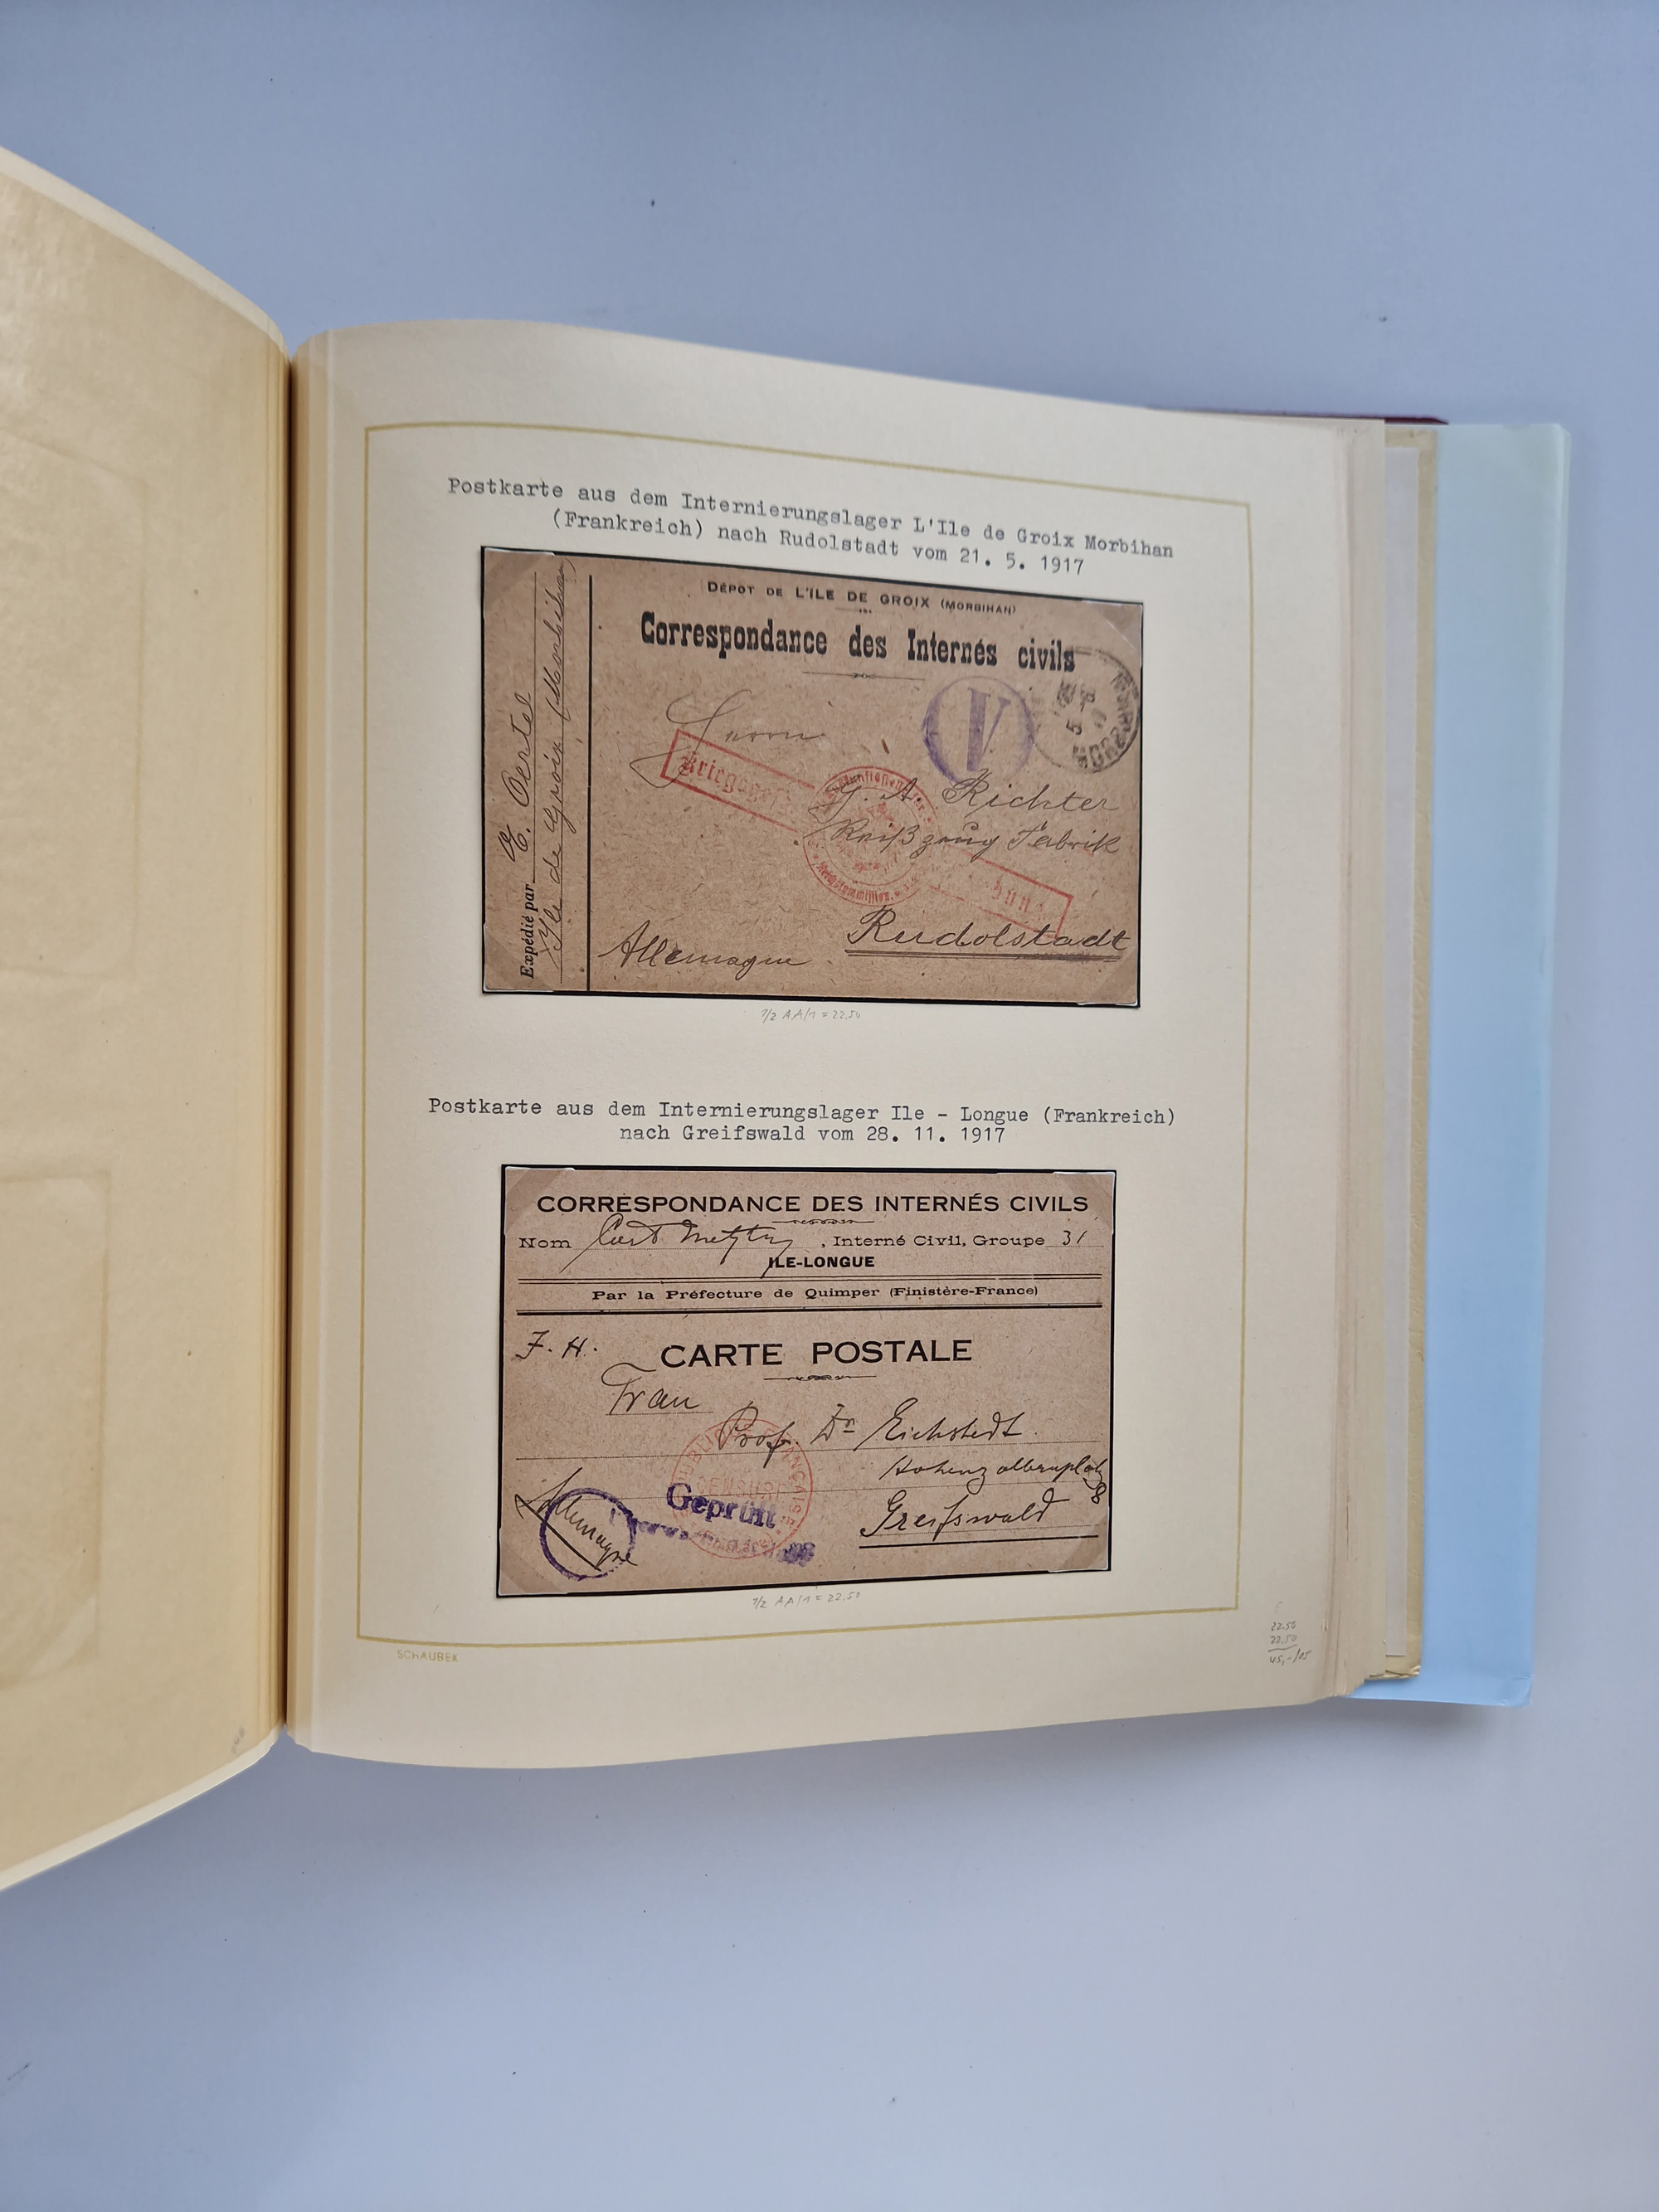 Postkarte aus dem Internierungslager L'Ile de Groix Morbihan
(Frankreich) nach Rudolstadt vom 21. 5. 1917
DÉPOT DE L'ILE DE GROIX (MORBIHAN)
Correspondance des Internés civils
Expédié par E. Oertel
Ile de Groix (Morbihan)
V
Herrn
Kriegsgef
G. A. Richter
Reißzeug Fabrik
Rudolstadt
Allemagne
1/2 AA/1 = 22.50
Postkarte aus dem Internierungslager Ile - Longue (Frankreich)
nach Greifswald vom 28. 11. 1917
CORRESPONDANCE DES INTERNÉS CIVILS
Nom Curt , Interné Civil, Groupe 31
ILE-LONGUE
Par la Préfecture de Quimper (Finistère-France)
F. H.
CARTE POSTALE
Frau
Prof. Dr Eichstedt.
Hohenzollernplatz
8
Greifswald
Allemagne
Geprüft
1/2 AA/1 = 22.50
SCHAUBEK
22.50
22.50
45,-/85